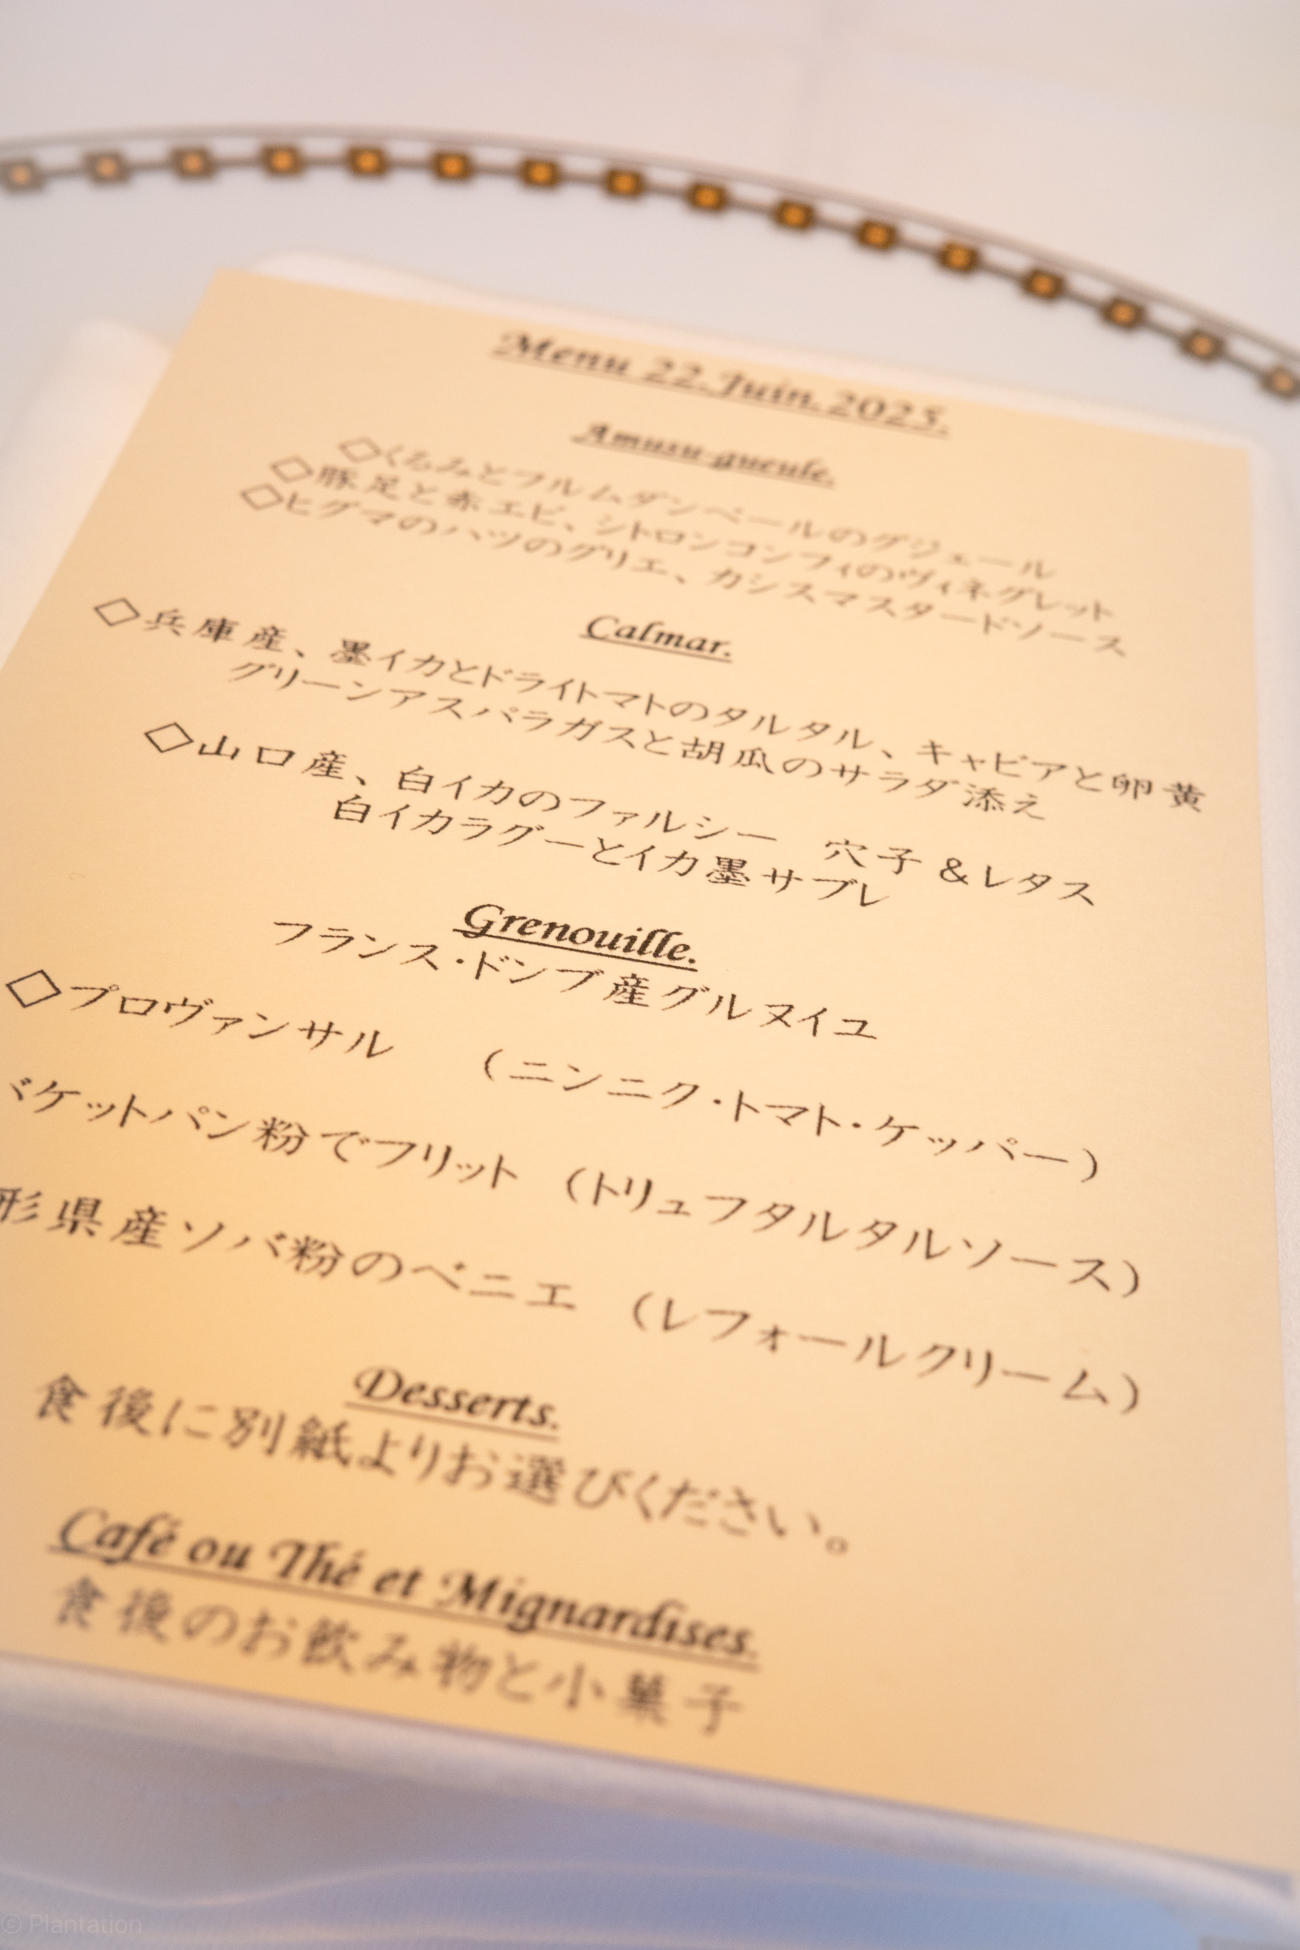 Menu 22.Juin.2025.
Amusu-gueule.
◇くるみとフルムダンベールのグジェール
◇豚足と赤エビ、シトロンコンフィのヴィネグレット
◇ヒグマのハツのグリエ、カシスマスタードソース
Calmar.
◇兵庫産、墨イカとドライトマトのタルタル、キャビアと卵黄
グリーンアスパラガスと胡瓜のサラダ添え
◇山口産、白イカのファルシー　穴子&レタス
白イカラグーとイカ墨サブレ
Grenouille.
フランス・ドンブ産グルヌイユ
◇プロヴァンサル　（ニンニク・トマト・ケッパー）
バケットパン粉でフリット（トリュフタルタルソース）
形県産ソバ粉のベニエ（レフォールクリーム）
Desserts.
食後に別紙よりお選びください。
Café ou Thé et Mignardises.
食後のお飲み物と小菓子
© Plantation